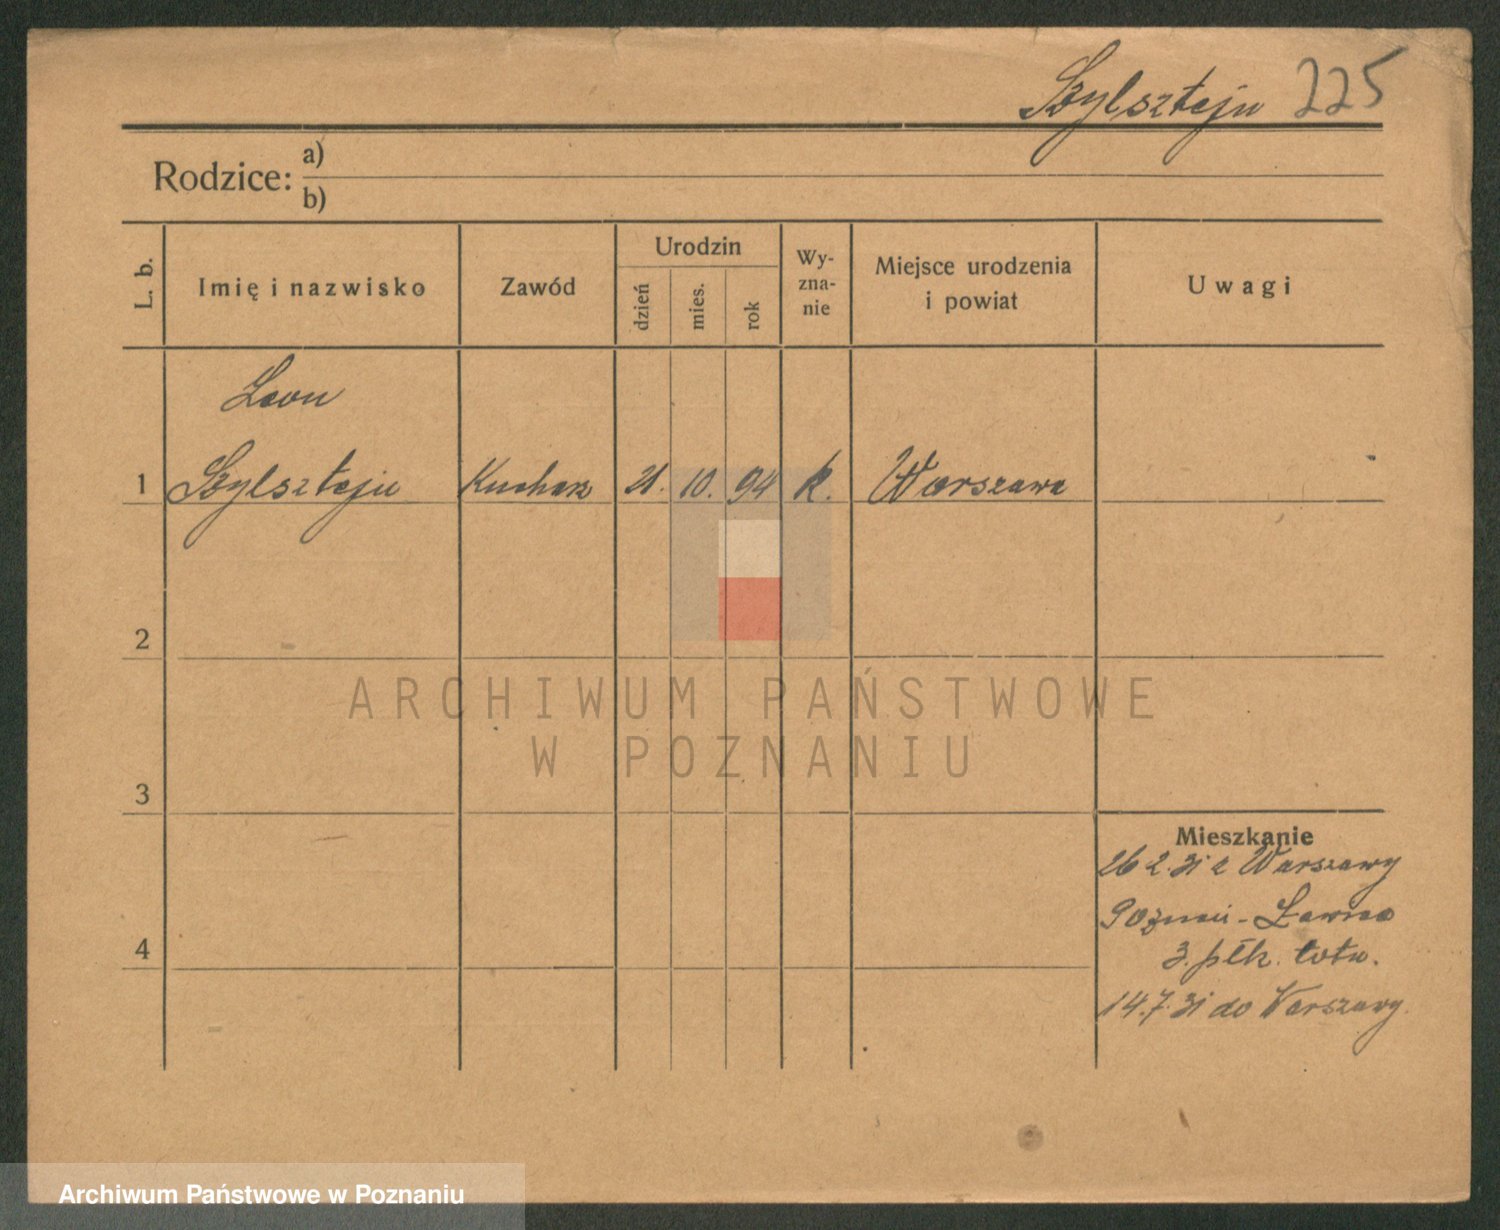 Szylsztejn 225
Rodzice: a)
b)
L. b.
Imię i nazwisko
Zawód
Urodzin
dzień
mies.
rok
Wy-
zna-
nie
Miejsce urodzenia
i powiat
Uwagi
Leon
1 Szylsztejn Kucharz 21. 10. 94 k. Warszawa
2
3
4
Mieszkanie
26 2. 31 z Warszawy
Poznań - Ławica
3. płk. lotn.
14.7.31 do Warszawy
ARCHIWUM PAŃSTWOWE
W POZNANIU
Archiwum Państwowe w Poznaniu